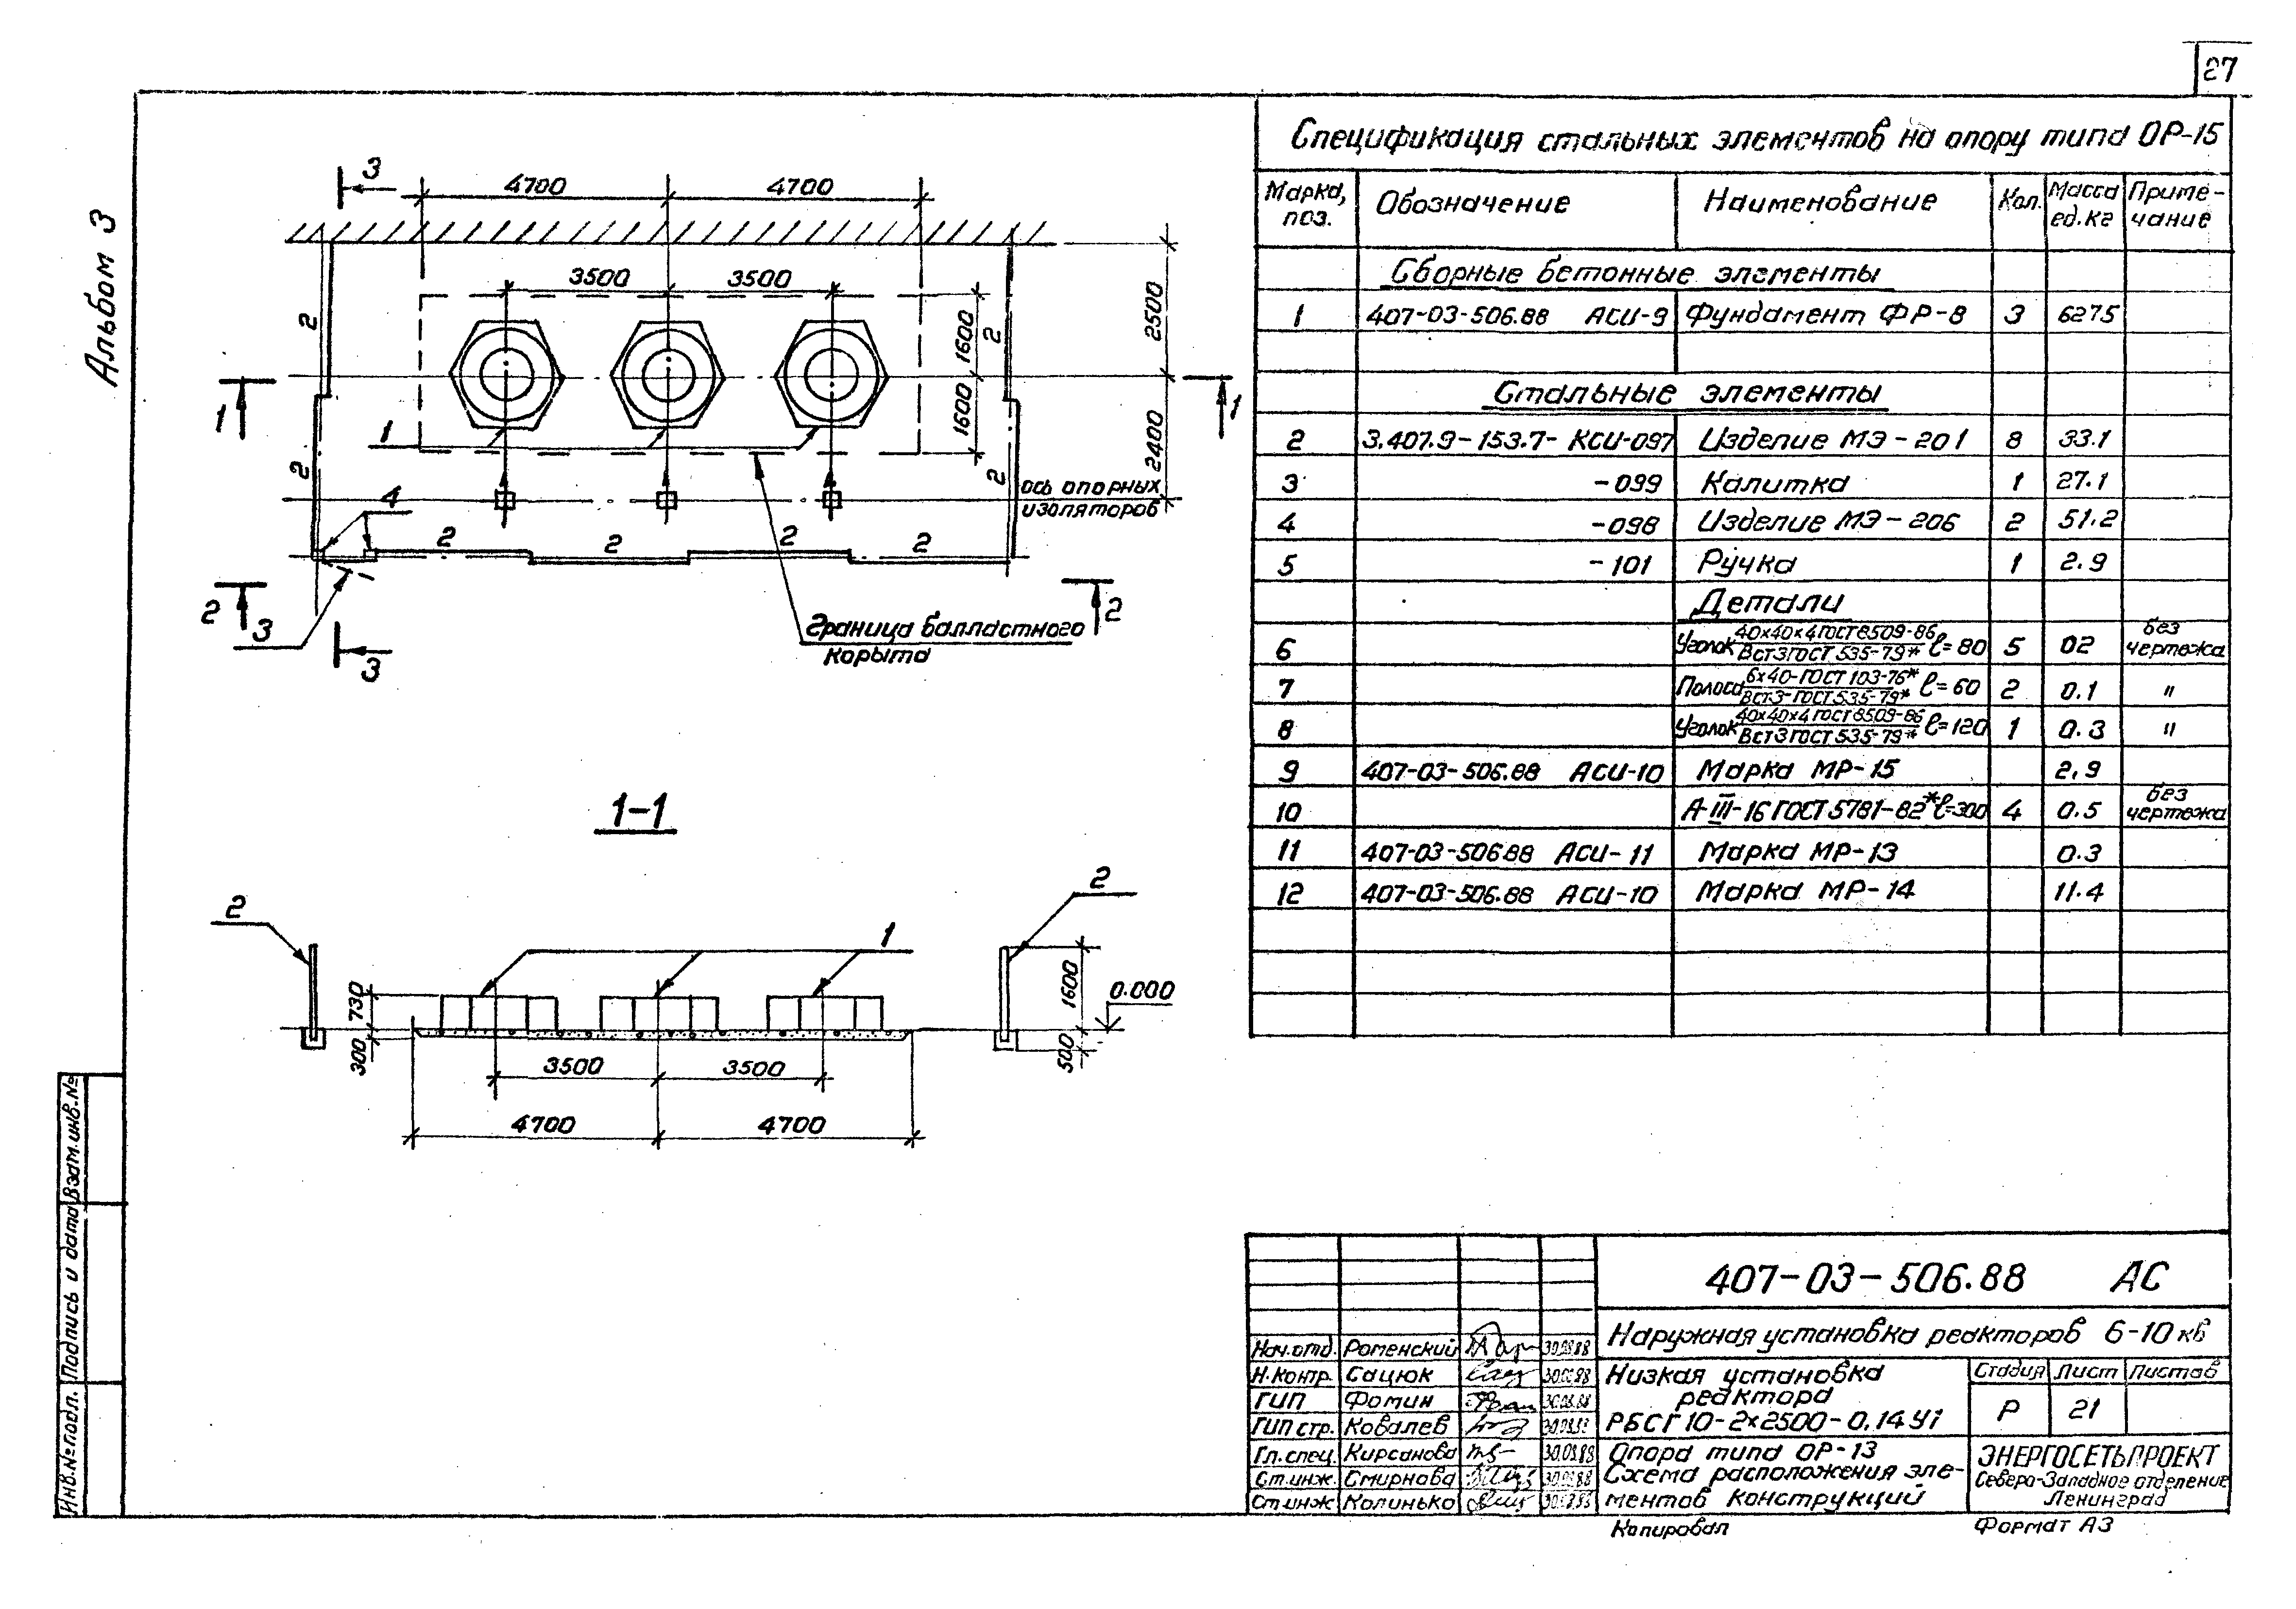 27
Альбом 3
3
4700 4700
3500 3500
2 2
1600
1600
2500
2400
1 1
1
2 2
4
ось опорных
изоляторов
2 2 2 2
2 2
3
3
Граница балластного
корыта
1-1
2 2
1
730
300
1600
500
0.000
3500 3500
4700 4700
Спецификация стальных элементов на опору типа ОР-15
Марка, поз. Обозначение Наименование Кол. Масса ед.кг Приме-чание
Сборные бетонные элементы
1 407-03-506.88 АСИ-9 Фундамент ФР-8 3 6275
Стальные элементы
2 3.407.9-153.7-КСИ-097 Изделие МЭ-201 8 33.1
3 -099 Калитка 1 27.1
4 -098 Изделие МЭ-206 2 51.2
5 -101 Ручка 1 2.9
Детали
6 Уголок 40х40х4 ГОСТ 8509-86 ВСт3 ГОСТ 535-79* ℓ=80 5 02 без чертежа
7 Полоса 6х40-ГОСТ 103-76* ВСт3-ГОСТ 535-79* ℓ=60 2 0.1 "
8 Уголок 40х40х4 ГОСТ 8509-86 ВСт3 ГОСТ 535-79* ℓ=120 1 0.3 "
9 407-03-506.88 АСИ-10 Марка МР-15 2,9
10 А-III-16 ГОСТ 5781-82* ℓ=300 4 0.5 без чертежа
11 407-03-50688 АСИ-11 Марка МР-13 0.3
12 407-03-506.88 АСИ-10 Марка МР-14 11.4
407-03-506.88 АС
Наружная установка реакторов 6-10 кв
Нач.отд. Роменский 30.08.88
Н.контр. Сацюк 30.08.88
ГИП Фомин 30.08.88
ГИП стр. Ковалев
Гл.спец. Кирсанова 30.08.88
Ст.инж. Смирнова 30.08.88
Ст.инж Калинько
Низкая установка
реактора
РБСГ 10-2х2500-0,14У1
Стадия Лист Листов
Р 21
Опора типа ОР-13
Схема расположения эле-
ментов конструкций
ЭНЕРГОСЕТЬПРОЕКТ
Северо-Западное отделение
Ленинград
Копировал Формат А3
Инв.№подл. Подпись и дата Взам.инв.№